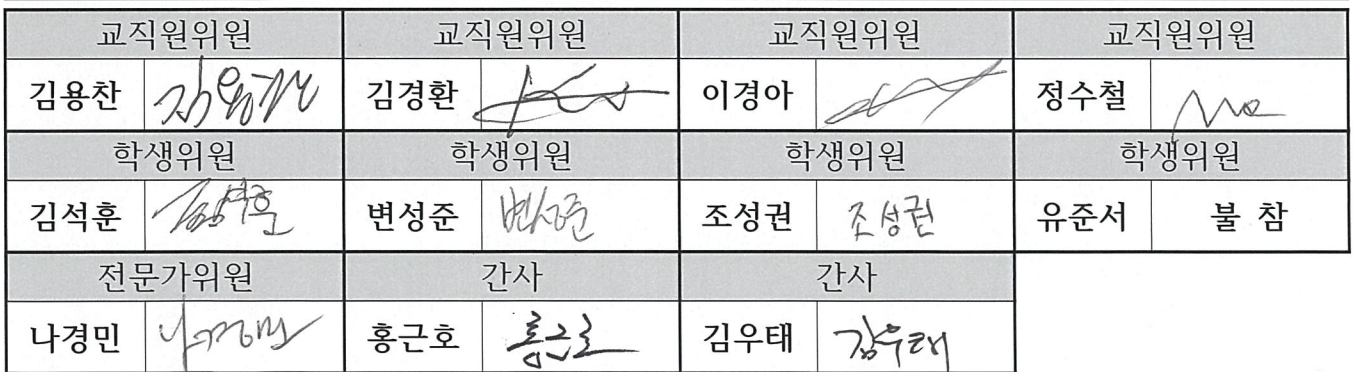 교직원위원 교직원위원 교직원위원 교직원위원
김용찬 김용찬 김경환 이경아 정수철
학생위원 학생위원 학생위원 학생위원
김석훈 김석훈 변성준 변성준 조성권 조성권 유준서 불 참
전문가위원 간사 간사
나경민 나경민 홍근호 홍근호 김우태 김우태